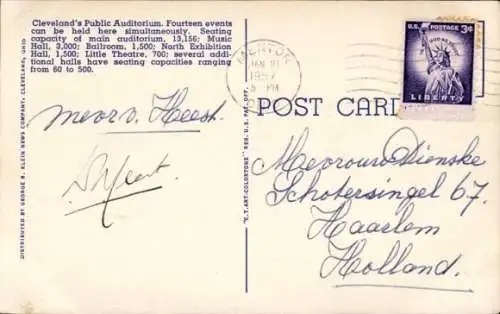 Cleveland's Public Auditorium. Fourteen events
can be held here simultaneously. Seating
capacity of main auditorium, 13,156; Music
Hall, 3,000; Ballroom, 1,500; North Exhibition
Hall, 1,500; Little Theatre, 700; several addi-
tional halls have seating capacities ranging
from 60 to 500.
U.S. POSTAGE 3¢
IN GOD WE TRUST
LIBERTY
MENTOR
JAN
1957
PM
POST CARD
DISTRIBUTED BY GEORGE R. KLEIN NEWS COMPANY, CLEVELAND, OHIO
"C.T. ART-COLORTONE" REG. U.S. PAT. OFF.
Mevr v. Heest.
Mevrouw Dienske
Schotersingel 67.
Haarlem
Holland.